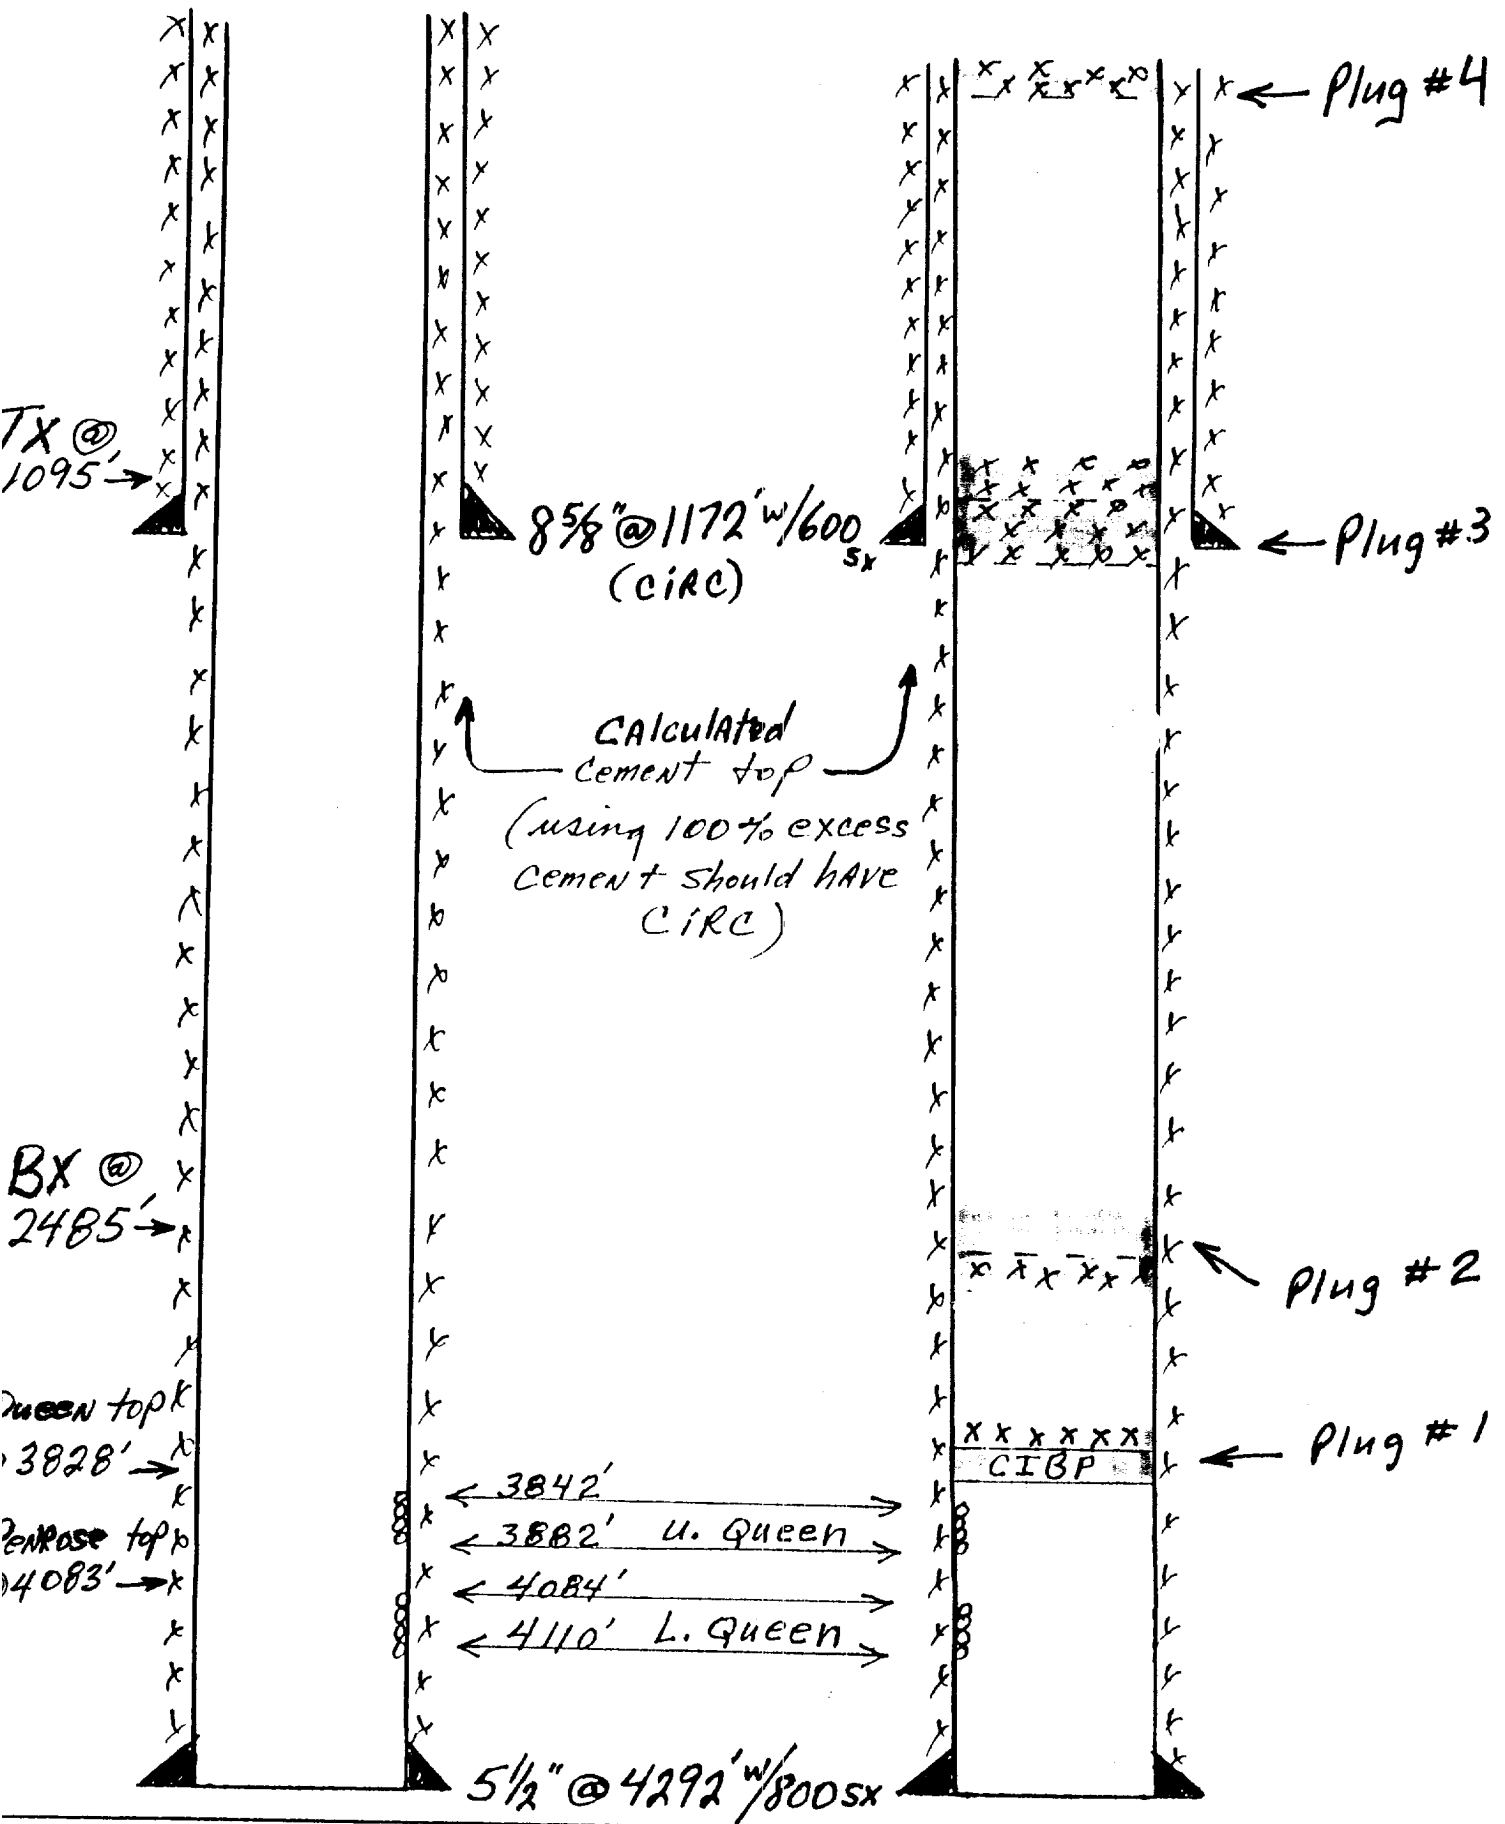 Plug #4
TX @
1095'
8 5/8" @ 1172' w/600 sx
(CIRC)
Plug #3
CAlculAted
cement top
(using 100% excess
cement should hAve
CIRC)
BX @
2485'
Plug #2
Queen top
3828'
CIBP
Plug #1
3842'
3882' U. Queen
Penrose top
4083'
4084'
4110' L. Queen
5 1/2" @ 4292' w/800 sx